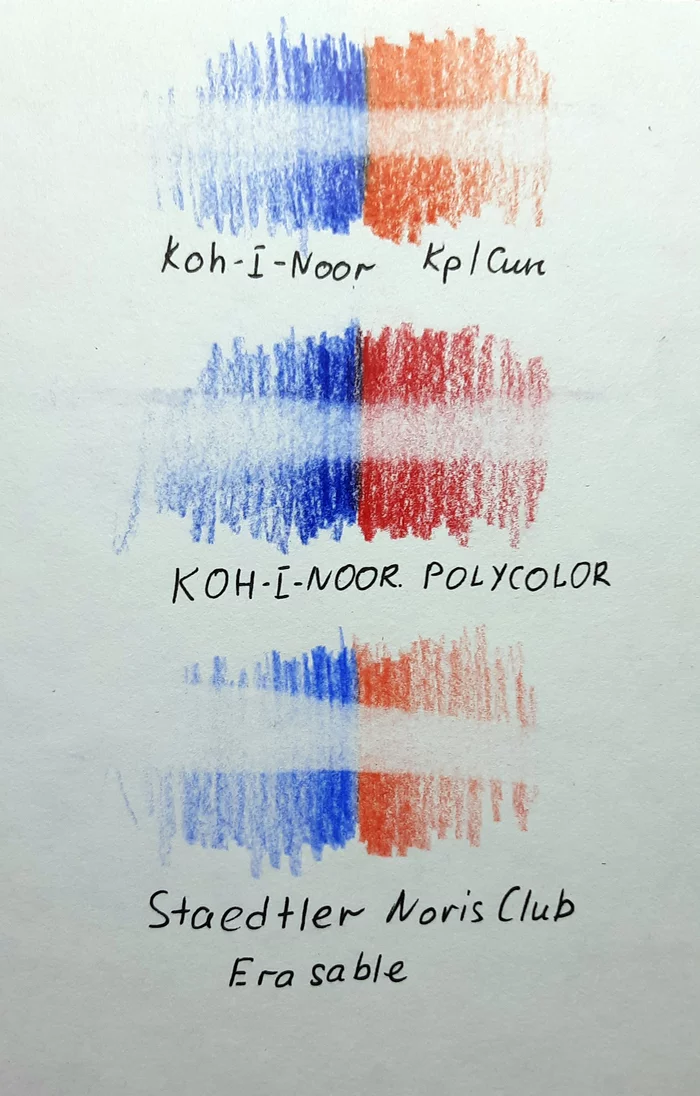 Koh-I-Noor Кр/Син
KOH-I-NOOR. POLYCOLOR
Staedtler Noris Club
Erasable